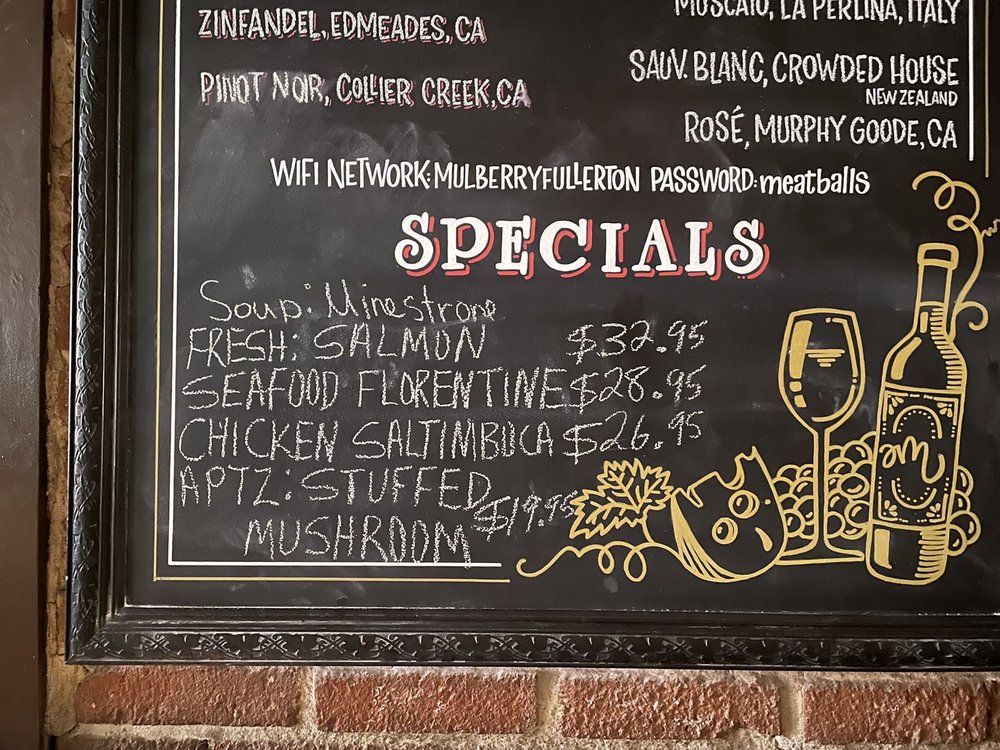 ZINFANDEL, EDMEADES, CA
PINOT NOIR, COLLIER CREEK, CA
MOSCATO, LA PERLINA, ITALY
SAUV. BLANC, CROWDED HOUSE
NEW ZEALAND
ROSÉ, MURPHY GOODE, CA
WIFI NETWORK: MULBERRYFULLERTON PASSWORD: meatballs
SPECIALS
Soup: Minestrone
FRESH: SALMON $32.95
SEAFOOD FLORENTINE $28.95
CHICKEN SALTIMBUCA $26.95
APTZ: STUFFED
MUSHROOM $19.95